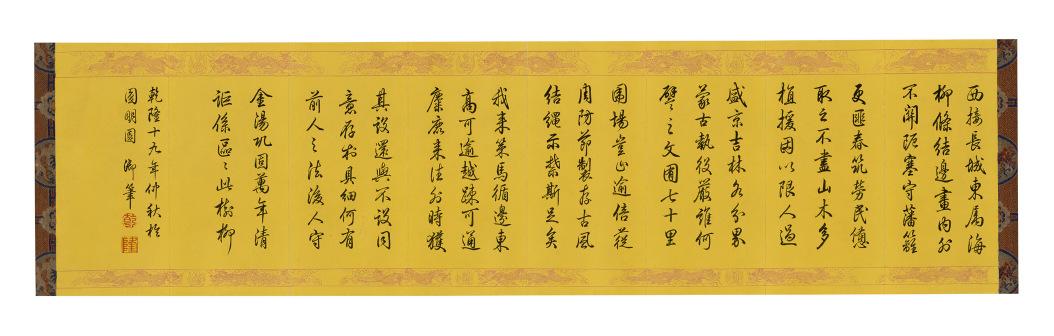 西接長城東屬海
柳條結邊畫內外
不關阨塞守藩籬
更匪春築勞民憊
取之不盡山木多
植援因以限人過
盛京吉林各分界
蒙古執役嚴誰何
譬之文囿七十里
圍場豈止逾倍蓰
周防節製存古風
結繩示禁斯足矣
我來策馬循邊東
高可逾越疎可通
麋鹿來往外時獲
其設還與不設同
意存於具細何有
前人之法後人守
金湯鞏固萬年清
詎係區區此樹柳
乾隆十九年仲秋於
圓明園 御筆
乾
隆